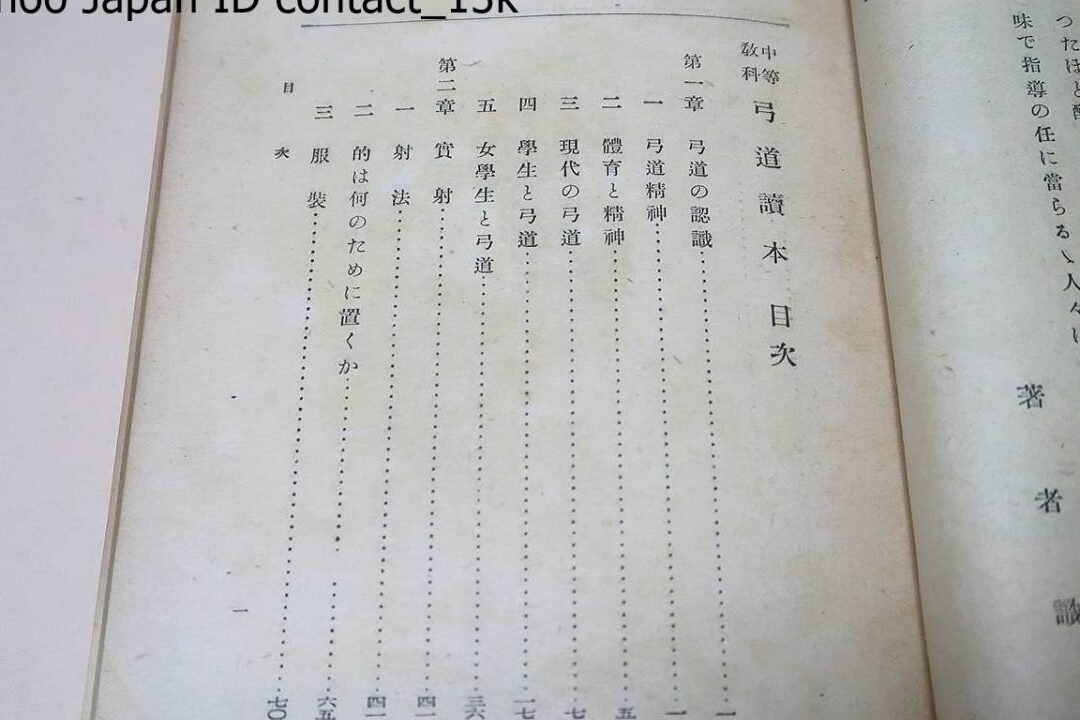 Japan ID contact_15k
つたほど
味で指導の任に當らるゝ人々に
著者識
中等教科 弓道讀本 目次
第一章 弓道の認識……一
一 弓道精神……一
二 體育と精神……五
三 現代の弓道……七
四 學生と弓道……一七
五 女學生と弓道……三六
第二章 實射……四一
一 射法……四一
二 的は何のために置くか……六五
三 服裝……七〇
目次
一